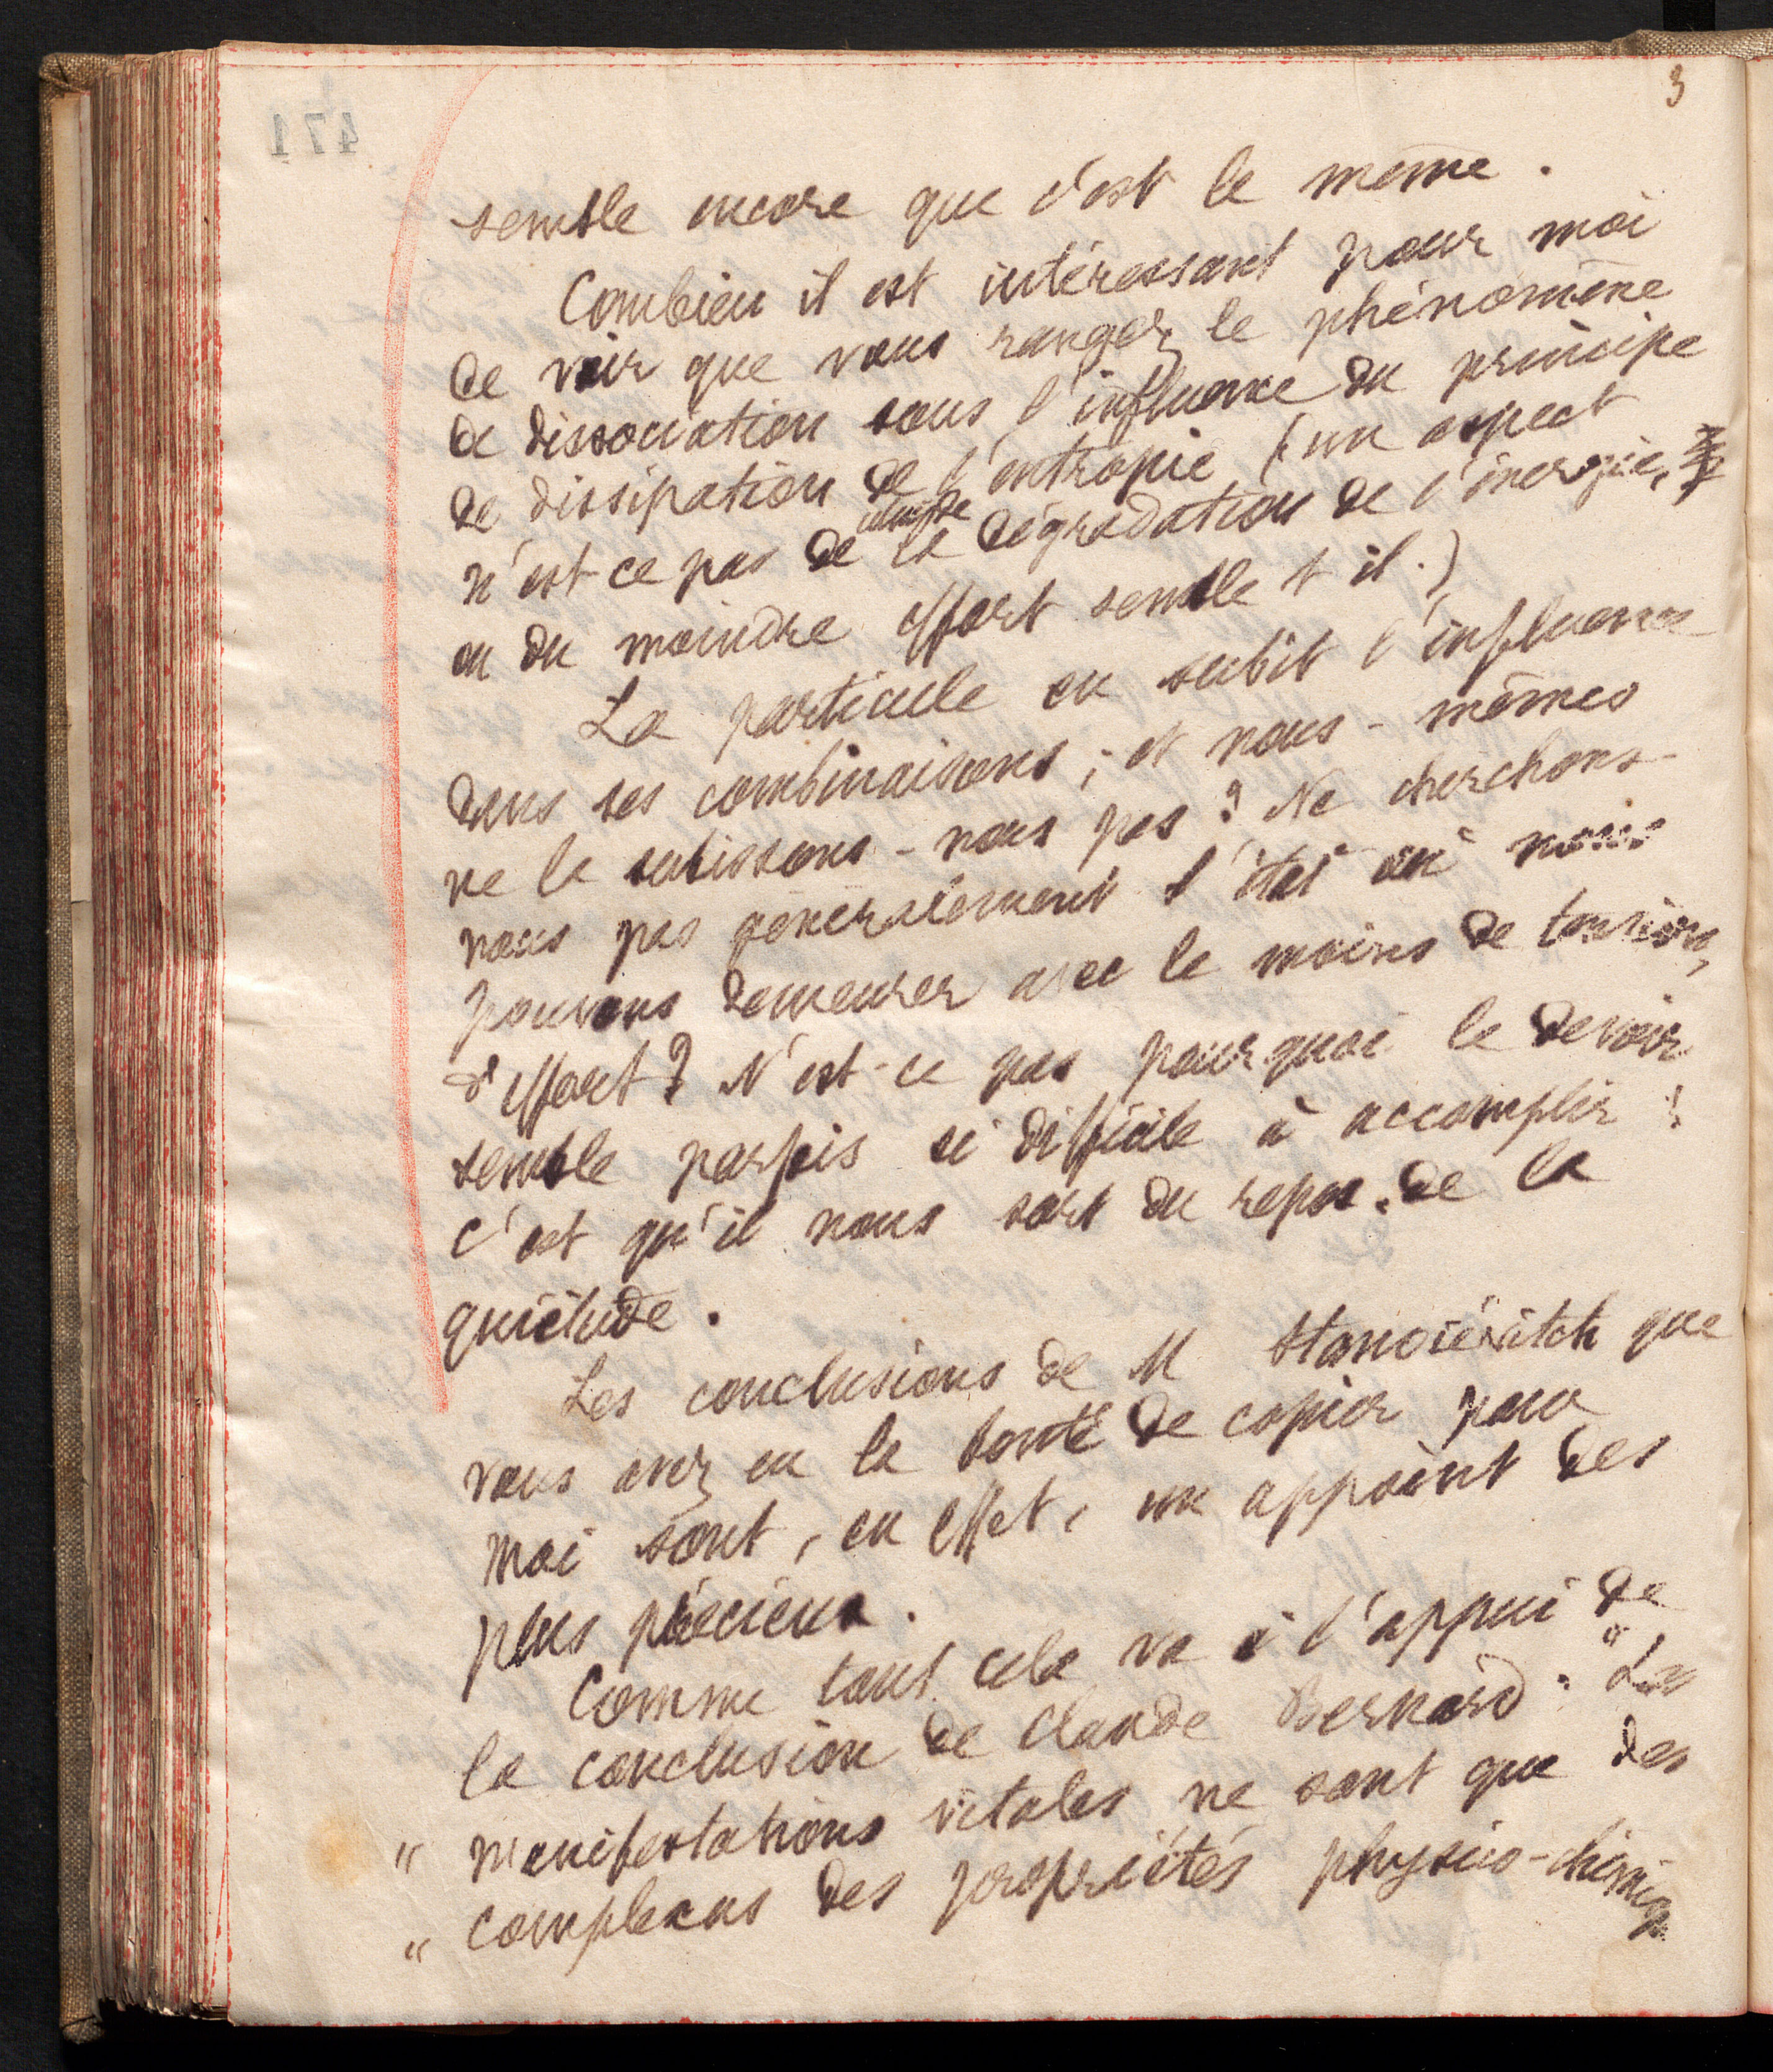 3
471
semble encore que c'est le même.
Combien il est intéressant pour moi
de voir que vous rangez le phénomène
de dissociation sous l'influence du principe
de dissipation de l'entropie (un aspect
n'est-ce pas de la dégradation de l'énergie,
ou du moindre effort semble t il.)
La particule en subit l'influence
dans ses combinaisons; et nous-mêmes
ne le subissons-nous pas? Ne cherchons-
nous pas généralement l'état où nous
pouvons demeurer avec le moins de tension,
d'effort? N'est-ce pas pourquoi le devoir
semble parfois si difficile à accomplir:
c'est qu'il nous sort du repos. de la
quiétude.
Les conclusions de M Stanoiévitch que
vous avez eu la bonté de copier pour
moi sont, en effet, un appoint des
plus précieux.
Comme tout cela va à l'appui de
la conclusion de Claude Bernard: "Les
" manifestations vitales ne sont que des
" complexus des propriétés physico-chimiq